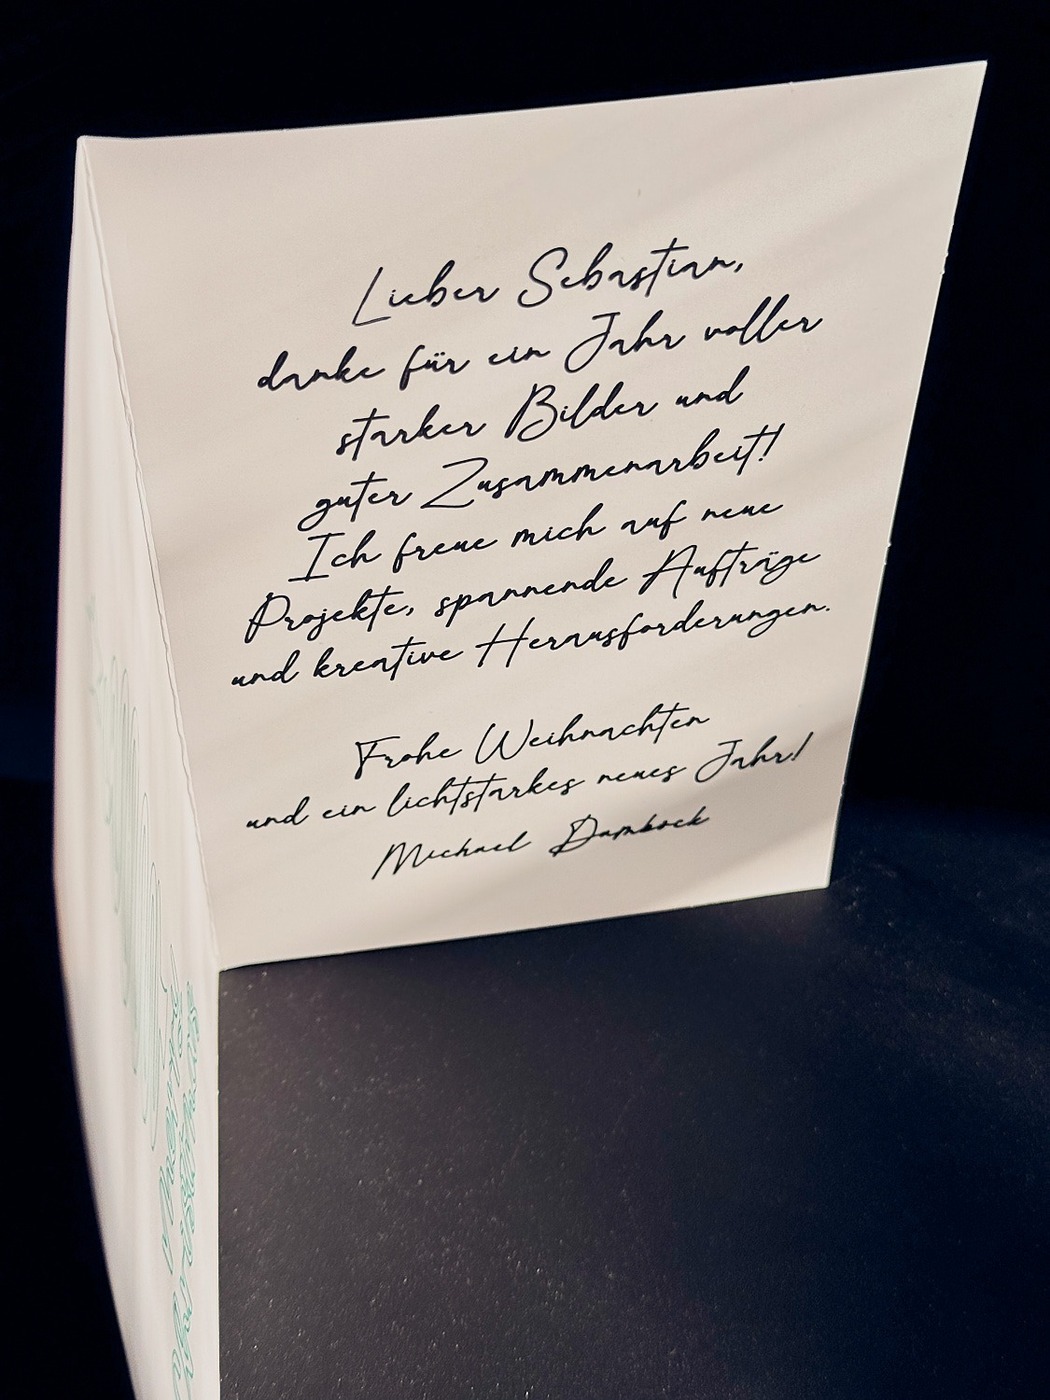 Lieber Sebastian,
danke für ein Jahr voller
starker Bilder und
guter Zusammenarbeit!
Ich freue mich auf neue
Projekte, spannende Aufträge
und kreative Herausforderungen.
Frohe Weihnachten
und ein lichtstarkes neues Jahr!
Michael Dambock